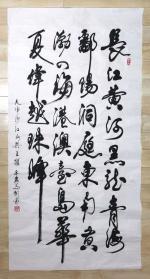 長江黄河黑龍青海
鄱陽洞庭東南黄
渤四海港澳臺島華
夏偉越珠峰